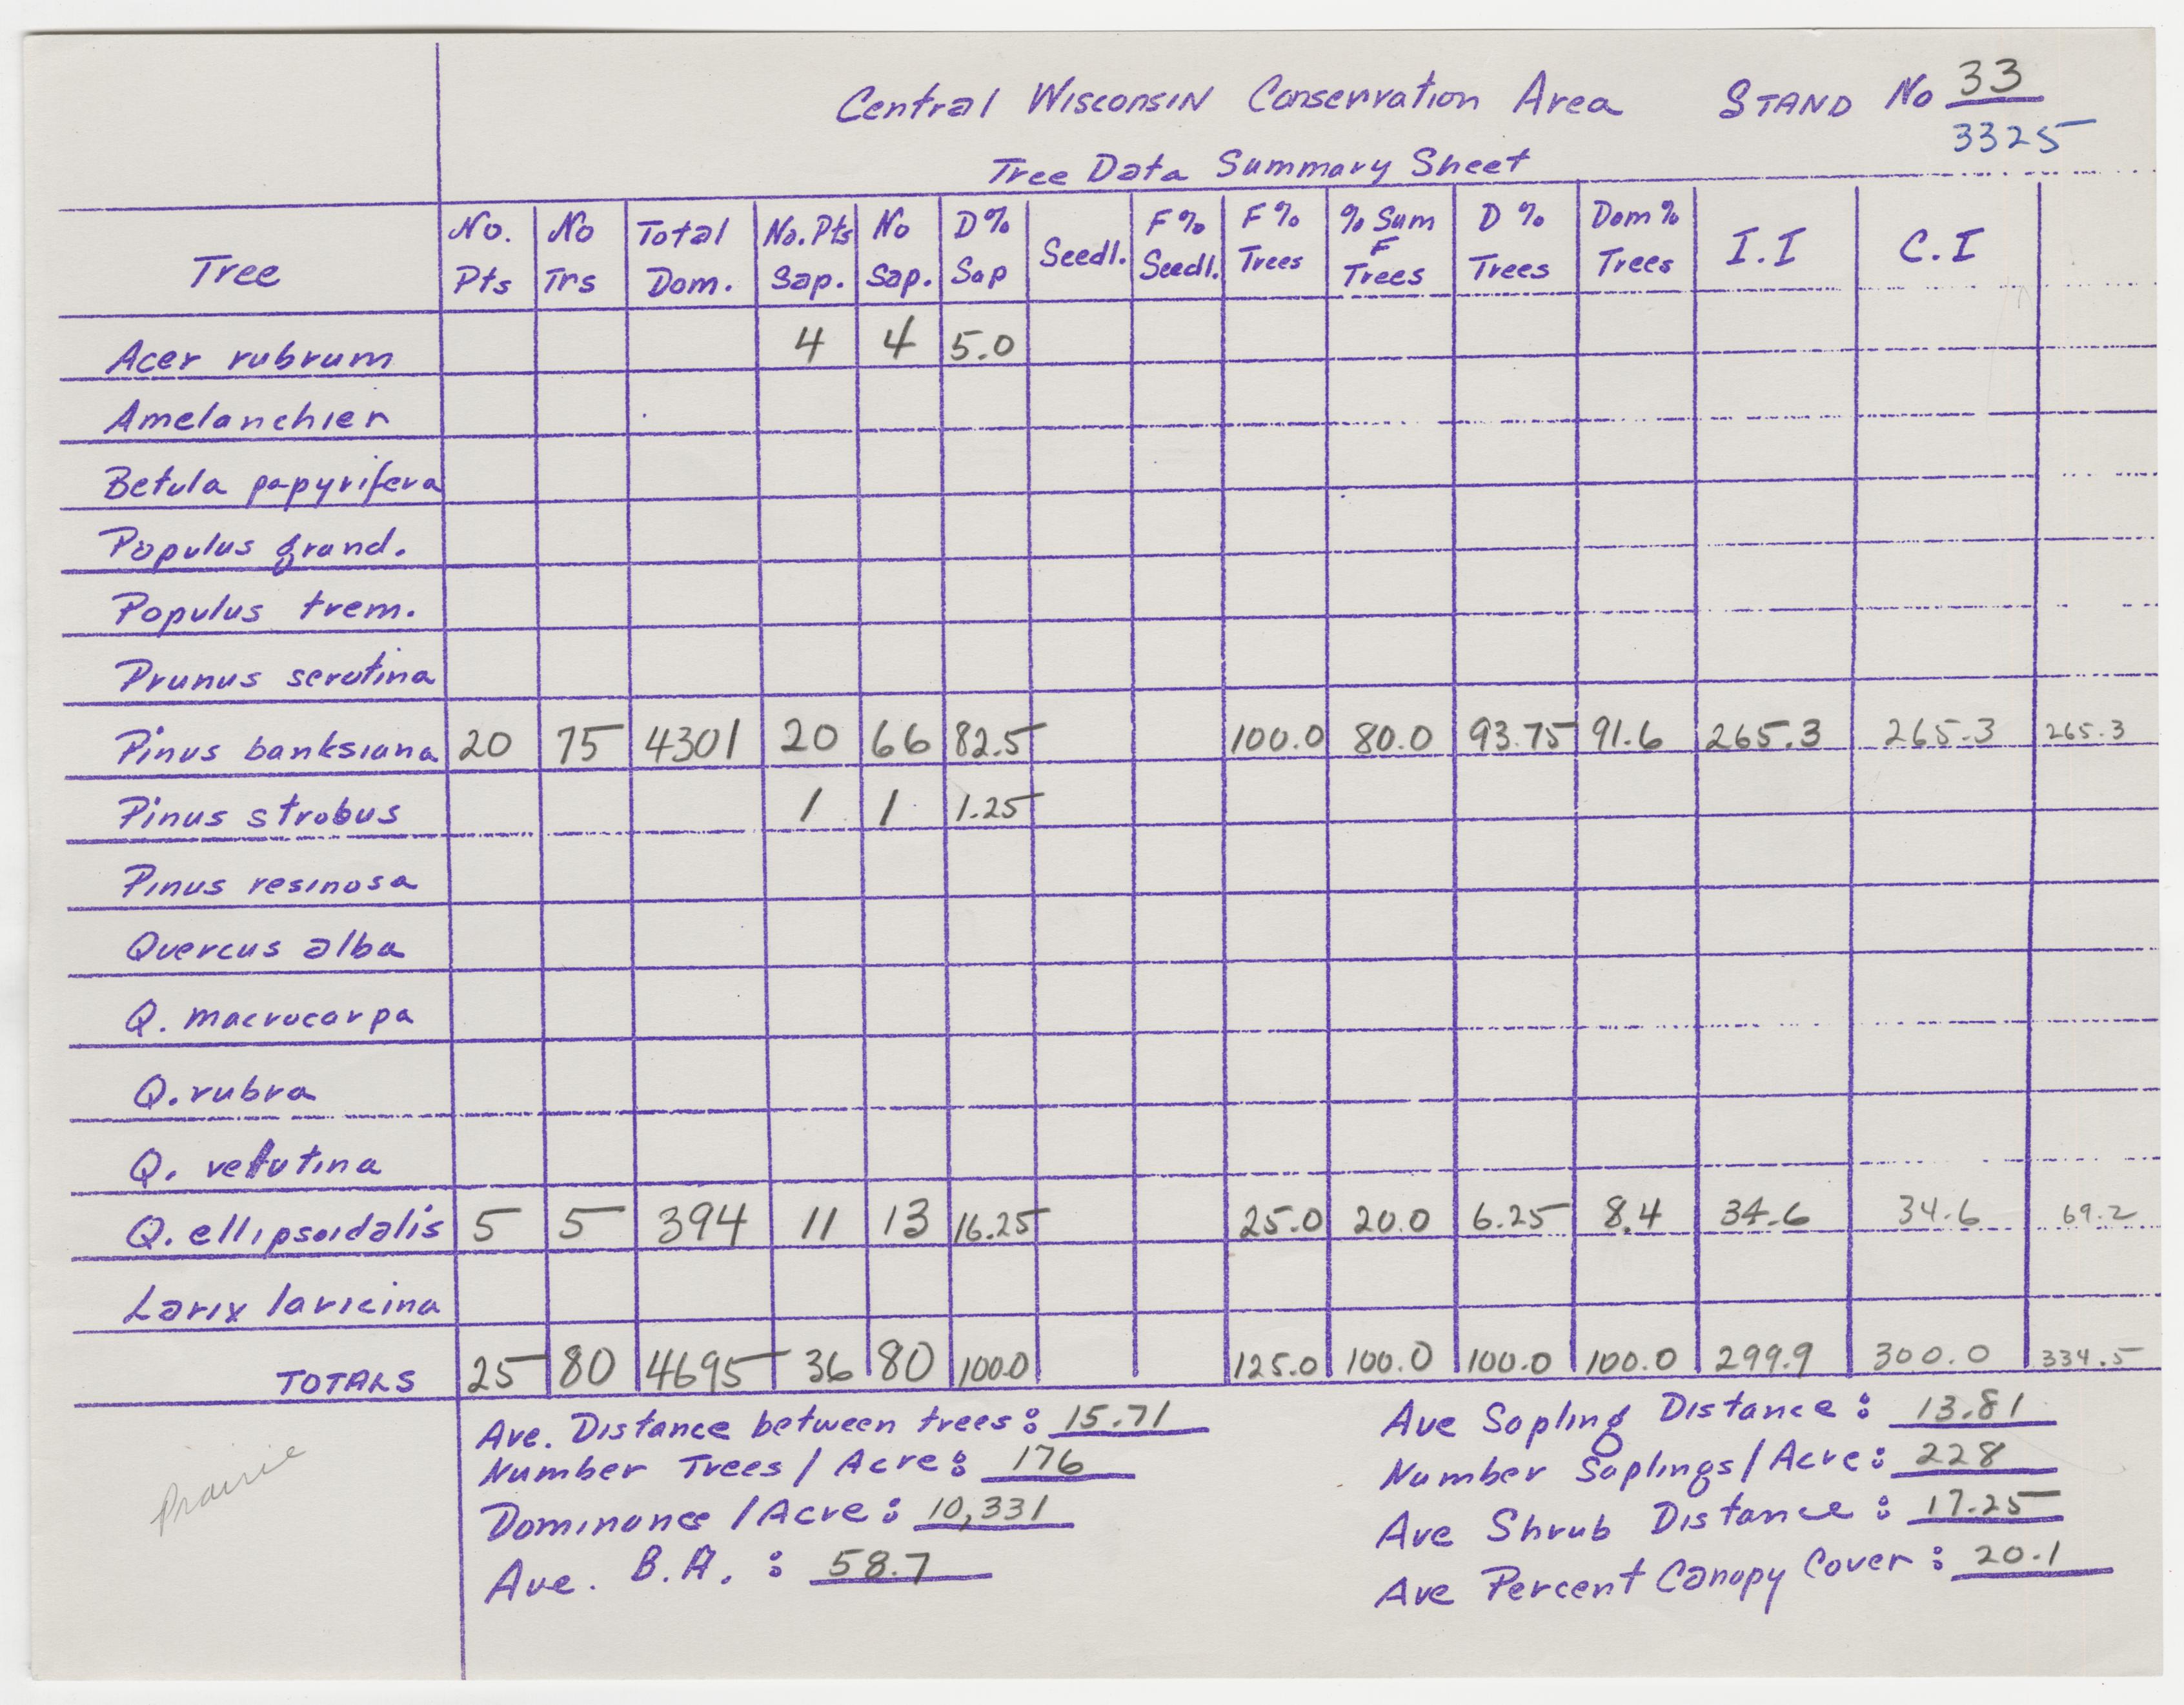 Central Wisconsin Conservation Area STAND No 33
3325
Tree Data Summary Sheet
Tree No. Pts No Trs Total Dom. No. Pts Sap. No Sap. D% Sap Seedl. F% Seedl. F% Trees % Sum F Trees D% Trees Dom% Trees I.I C.I
Acer rubrum 4 4 5.0
Amelanchier
Betula papyrifera
Populus grand.
Populus trem.
Prunus serotina
Pinus banksiana 20 75 4301 20 66 82.5 100.0 80.0 93.75 91.6 265.3 265.3 265.3
Pinus strobus 1 1 1.25
Pinus resinosa
Quercus alba
Q. macrocarpa
Q. rubra
Q. velutina
Q. ellipsoidalis 5 5 394 11 13 16.25 25.0 20.0 6.25 8.4 34.6 34.6 69.2
Larix laricina
TOTALS 25 80 4695 36 80 100.0 125.0 100.0 100.0 100.0 299.9 300.0 334.5
Ave. Distance between trees: 15.71
Number Trees / Acre: 176
Dominance / Acre: 10,331
Ave. B.A. : 58.7
Ave Sapling Distance: 13.81
Number Saplings / Acre: 228
Ave Shrub Distance: 17.25
Ave Percent Canopy Cover: 20.1
Prairie